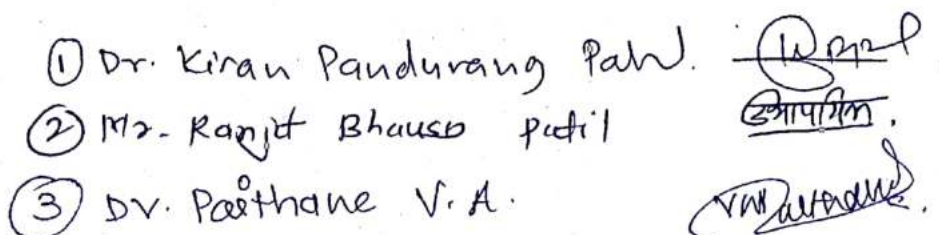 ① Dr. Kiran Pandurang Patil.
② Mr. Ranjit Bhauso Patil
③ Dr. Paithane V.A.